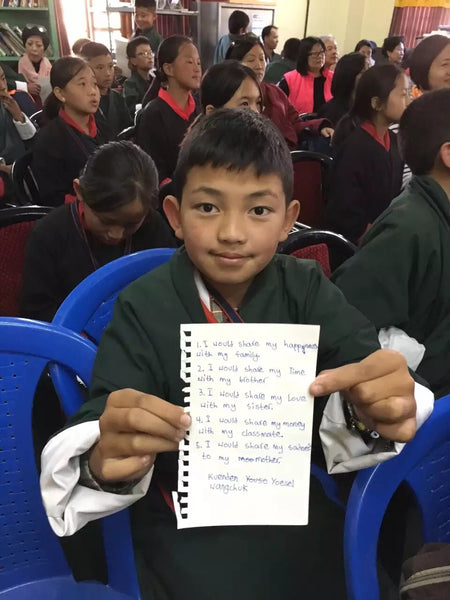 1. I would share my happyness
with my family.
2. I would share my Time
with my brother
3. I would share my Love
with my sister.
4. I would share my money
with my classmate.
5. I would share my
to my mother
Kuenden House Yoesel
Wangchuk